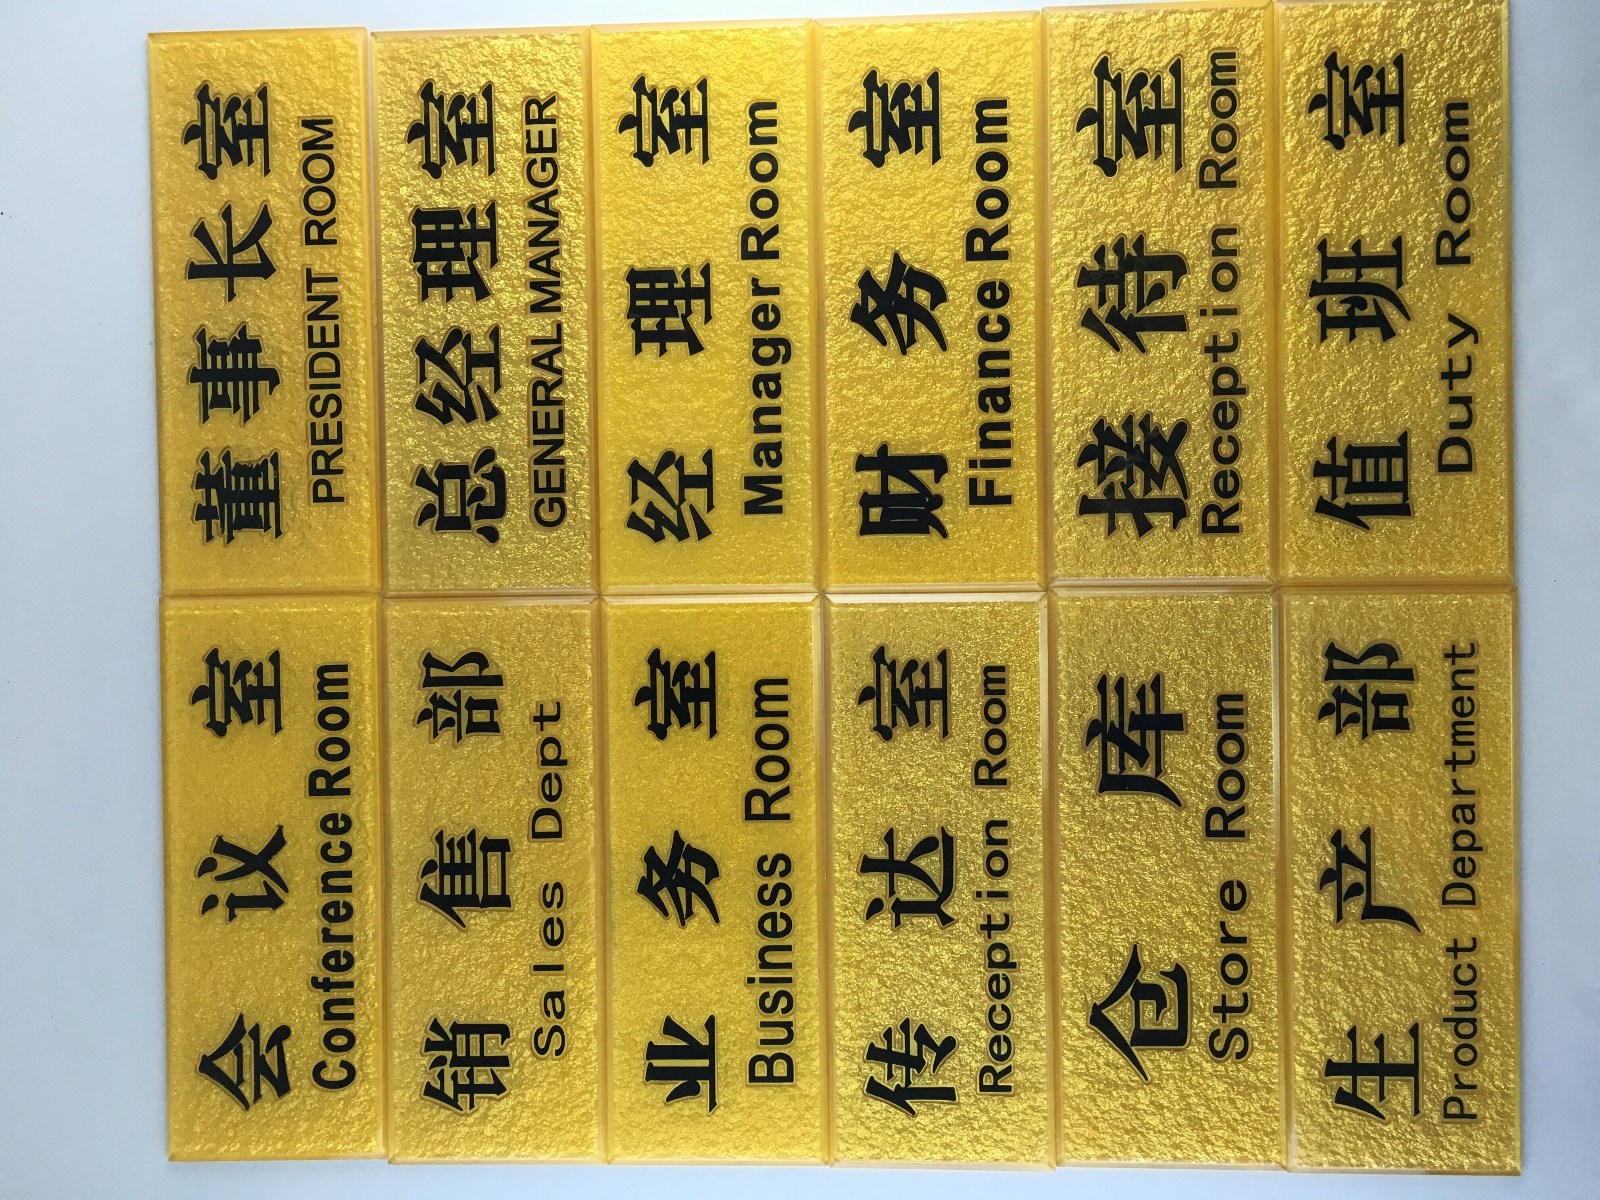 会议室
Conference Room
董事长室
PRESIDENT ROOM
销售部
Sales Dept
总经理室
GENERAL MANAGER
业务室
Business Room
经理室
Manager Room
传达室
Reception Room
财务室
Finance Room
仓库
Store Room
接待室
Reception Room
生产部
Product Department
值班室
Duty Room